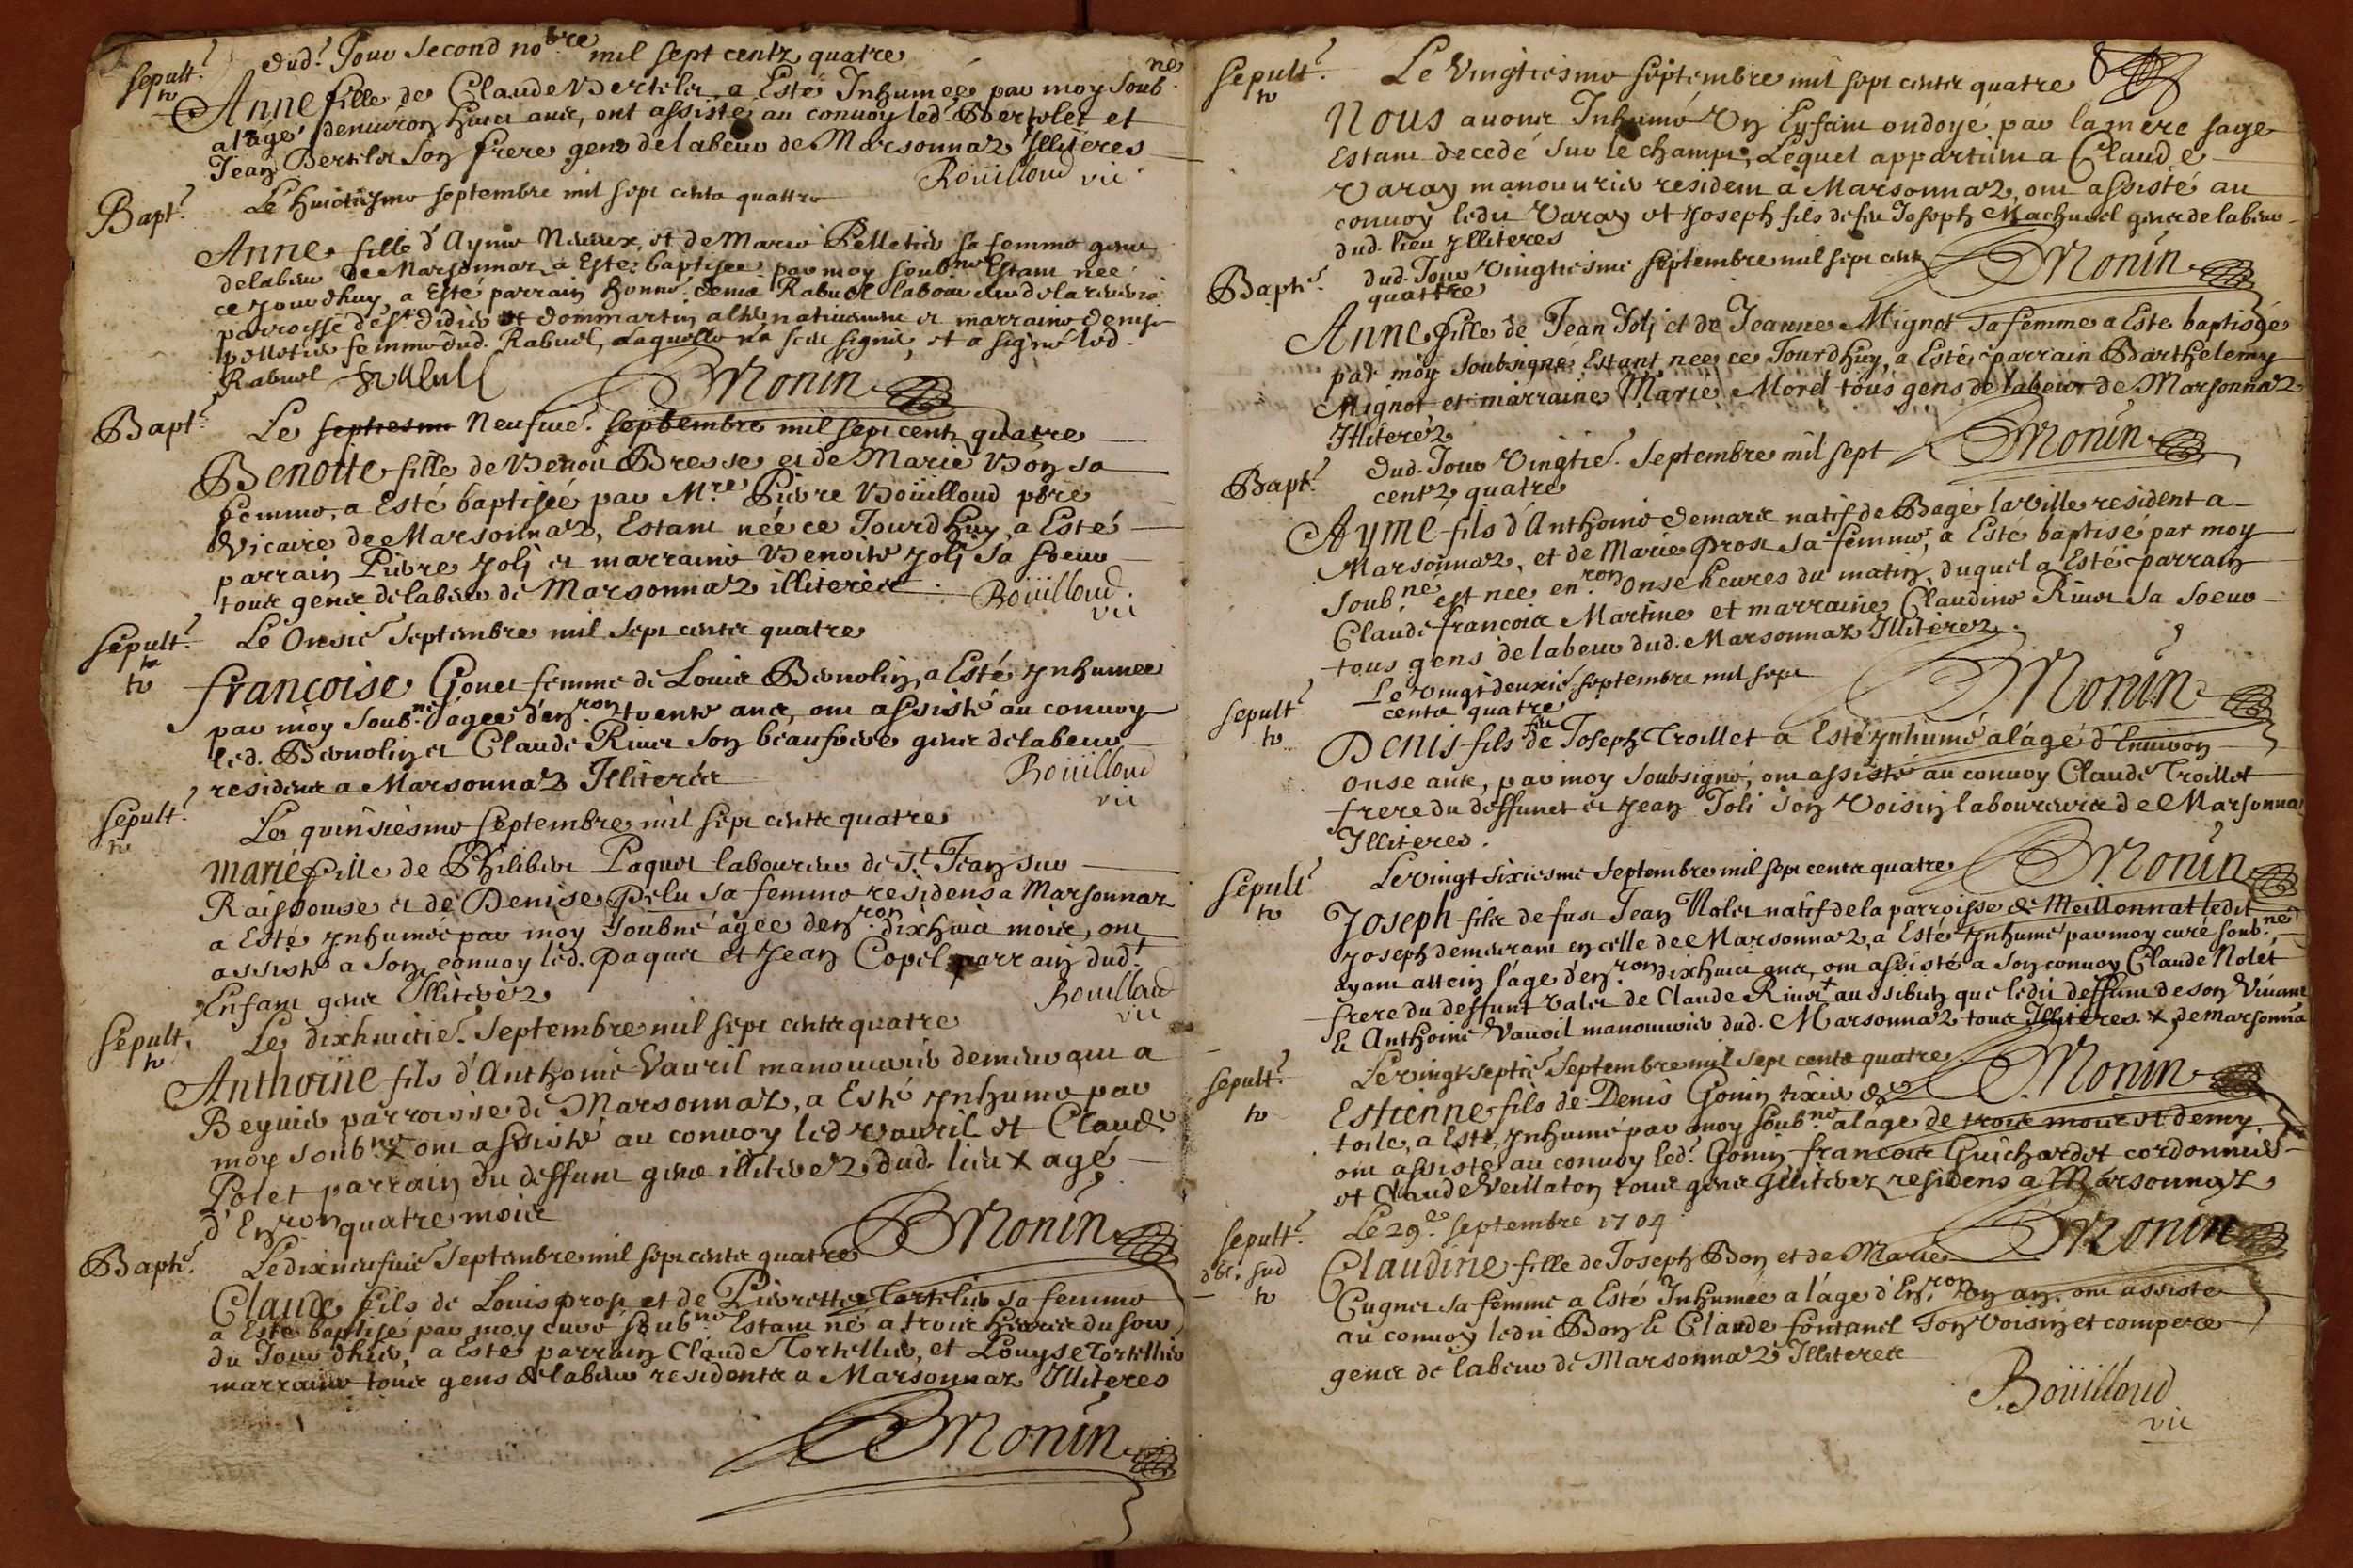 Sepult.e dud.t Jour Second no.bre mil sept centz quatre
Anne fille de Claude Bertelet a Esté Inhumée par moy Soub.né
a l'âge d'environ huict ans, ont assisté au convoy led.t Bertelet et
Jean Bertelet Son frere gens de labeur de Marsonnaz Illiteres
Boüilloud vic
Bapt.e Le huictiesme septembre mil sept cents quattre
Anne fille d'Ayme Niveux, et de Marie Pelletier sa femme gens
de labeur de Marsonnaz a Estez baptisée par moy soub.né Estant née
ce jourdhuy, a Esté parrain honne. Denis Rabuel laboureur de la
parroisse de S.t Didier et Dommartin alternativement et marraine Denise
Pelletier femme dud. Rabuel, Laquelle n'a sceu signer, et a signé led.
Rabuel Rabuel Monin
Bapt.e Le septiesme Neufvie. septembre mil sept centz quatre
Benoite fille de Benoi Bresse et de Marie Bon sa
femme, a Esté baptisée par M.re Pierre Boüilloud pbre
Vicaire de Marsonnaz, Estant née ce Jourdhuy, a Esté
parrain Pierre Joli et marraine Benoite Joli Sa soeur
tous gens de labeur de Marsonnaz illiteres
Boüilloud vic
Sepult.e Le Onzie septembre mil sept cents quatre
françoise Gonet femme de Louis Bernolin, a Esté Inhumée
par moy Soub.né âgée d'en.ron trente ans, ont assisté au convoy
led. Bernolin et Claude Rivet Son beaufrere gens de labeur
residents a Marsonnaz Illiteres
Boüilloud vic
Sepult.e Le quinsiesme septembre mil sept cents quatre
marie fille de Philibert Paquet laboureur de S.t Jean sur
Raissouse et de Denise Pelu sa femme residens a Marsonnaz
a Esté Inhumée par moy Soubné âgée d'en.ron dixhuit mois, ont
assisté a Son convoy led. Paquet et Jean Copel parrain dud.t
Enfant gens Illiterez
Bouilloud vic
Sepult. Le dixhuictie. septembre mil sept cents quatre
Anthoine fils d'Anthoine Vauril manouvrier demeurant a
Beyvier parroisse de Marsonnaz, a Esté Inhumé par
moy soub.né x ont assisté au convoy led Vauril et Claude
Polet parrain du deffunt gens illiterez dud. lieu x agé
d'En.ron quatre mois
Monin
Bapte. Le dixneufvie septembre mil sept cents quatre
Claude fils de Louis Prost et de Pierrette Tortelier sa femme
a Esté baptisé par moy curé soub.né Estant né a trois heures du soir
du Jourdhuis, a Esté parrain Claude Tortellier, et Louyse Tortellier
marraine tous gens de labeur residents a Marsonnaz Illiteres
Monin
Sepult.e Le Vingtiesme septembre mil sept cents quatre 8
Nous avons Inhumé Un Enfant ondoyé par la mere sage
Estant decedé sur le champs, Lequel appartient a Claude
Varay manouvrier resident a Marsonnaz, ont assisté au
convoy ledit Varay et Joseph fils de feu Joseph Machurel gens de labeur
dud. lieu Illiteres
Monin
Bapte. dud. Jour Vingtiesme septembre mil sept cent
quattre
Anne fille de Jean Joli et de Jeanne Mignot sa femme a Esté baptisée
par moy soubsigné Estant née ce Jourdhuy, a Esté parrain Barthelemy
Mignot et marraine Marie Morel tous gens de labeur de Marsonnaz
Illiterez
Monin
Bapt.e dud. Jour Vingtie. septembre mil sept
centz quatre
Aymé fils d'Anthoine Demare natif de Bagé la ville resident a
Marsonnaz, et de Marie Prost sa femme, a Esté baptisé par moy
Soub.né est née en.ron onse heures du matin, duquel a Esté parrain
Claude francois Martine et marraine Claudine Rivet sa soeur
tous gens de labeur dud. Marsonnaz Illiterez
Monin
Sepult.e Le vingtdeuxie septembre mil sept
cents quatre
Denis fils de feu Joseph Troillet a Esté Inhumé a l'âgé d'Environ
onse ans, par moy Soubsigné, ont assisté au convoy Claude Troillet
frere du deffunct et Jean Joli Son Voisin laboureurs de Marsonna
Illiteres.
Monin
Sepult.e Le vingt sixiesme septembre mil sept cents quatre
Joseph fils de fust Jean Nolet natif de la parroisse de Meillonnat ledit
Joseph demeurant en celle de Marsonnaz, a Esté Inhumé par moy curé soub.né
ayant attein l'age d'en.ron dixhuict ans, ont assisté a Son convoy Claude Nolet
frere du deffunt valet de Claude Rivet x aussi bien que ledit deffunt de son Vivant
& Anthoine Vauril manouvrier dud. Marsonnaz tous Illiteres. x de marsonna
Monin
Sepult.e Le vingtseptie septembre mil sept cents quatre
Estienne fils de Denis Gonin tixier de
toile, a Esté Inhumé par moy soub.né a l'âge de trois mois et demy,
ont assisté au convoy led.t Gonin francois Guichardet cordonnier
et Claude Veillaton tous gens Illiterez residens a Marsonnaz
Monin
Sepult.e Le 29.e septembre 1704
Claudine fille de Joseph Bon et de Marie
Cugnet sa femme a Esté Inhumée a l'âge d'En.ron un an, ont assisté
au convoy ledit Bon & Claude fontanel Son Voisin et compere
gens de labeur de Marsonnaz Illiteres
Boüilloud
vic